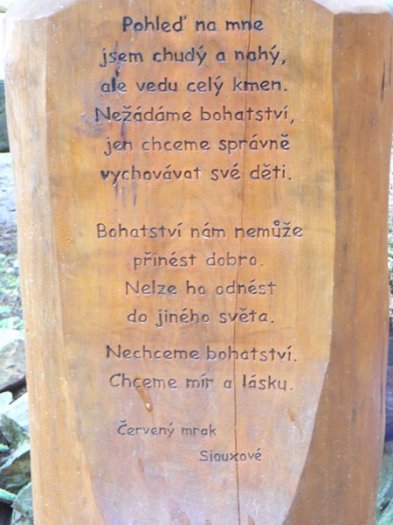 Pohleď na mne
jsem chudý a nahý,
ale vedu celý kmen.
Nežádáme bohatství,
jen chceme správně
vychovávat své děti.
Bohatství nám nemůže
přinést dobro.
Nelze ho odnést
do jiného světa.
Nechceme bohatství.
Chceme mír a lásku.
Červený mrak
Siouxové